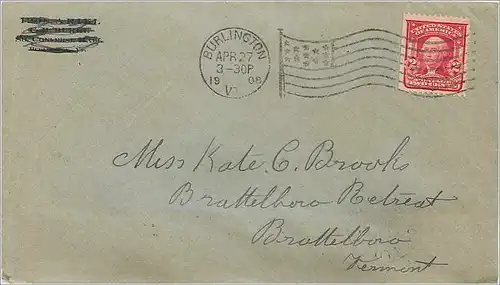 BURLINGTON
APR 27
3-30P
19 08
VT.
UNITED STATES
OF AMERICA
2 2
TWO CENTS
Miss Kate C. Brooks
Brattelboro Retreat
Brattelboro
Vermont